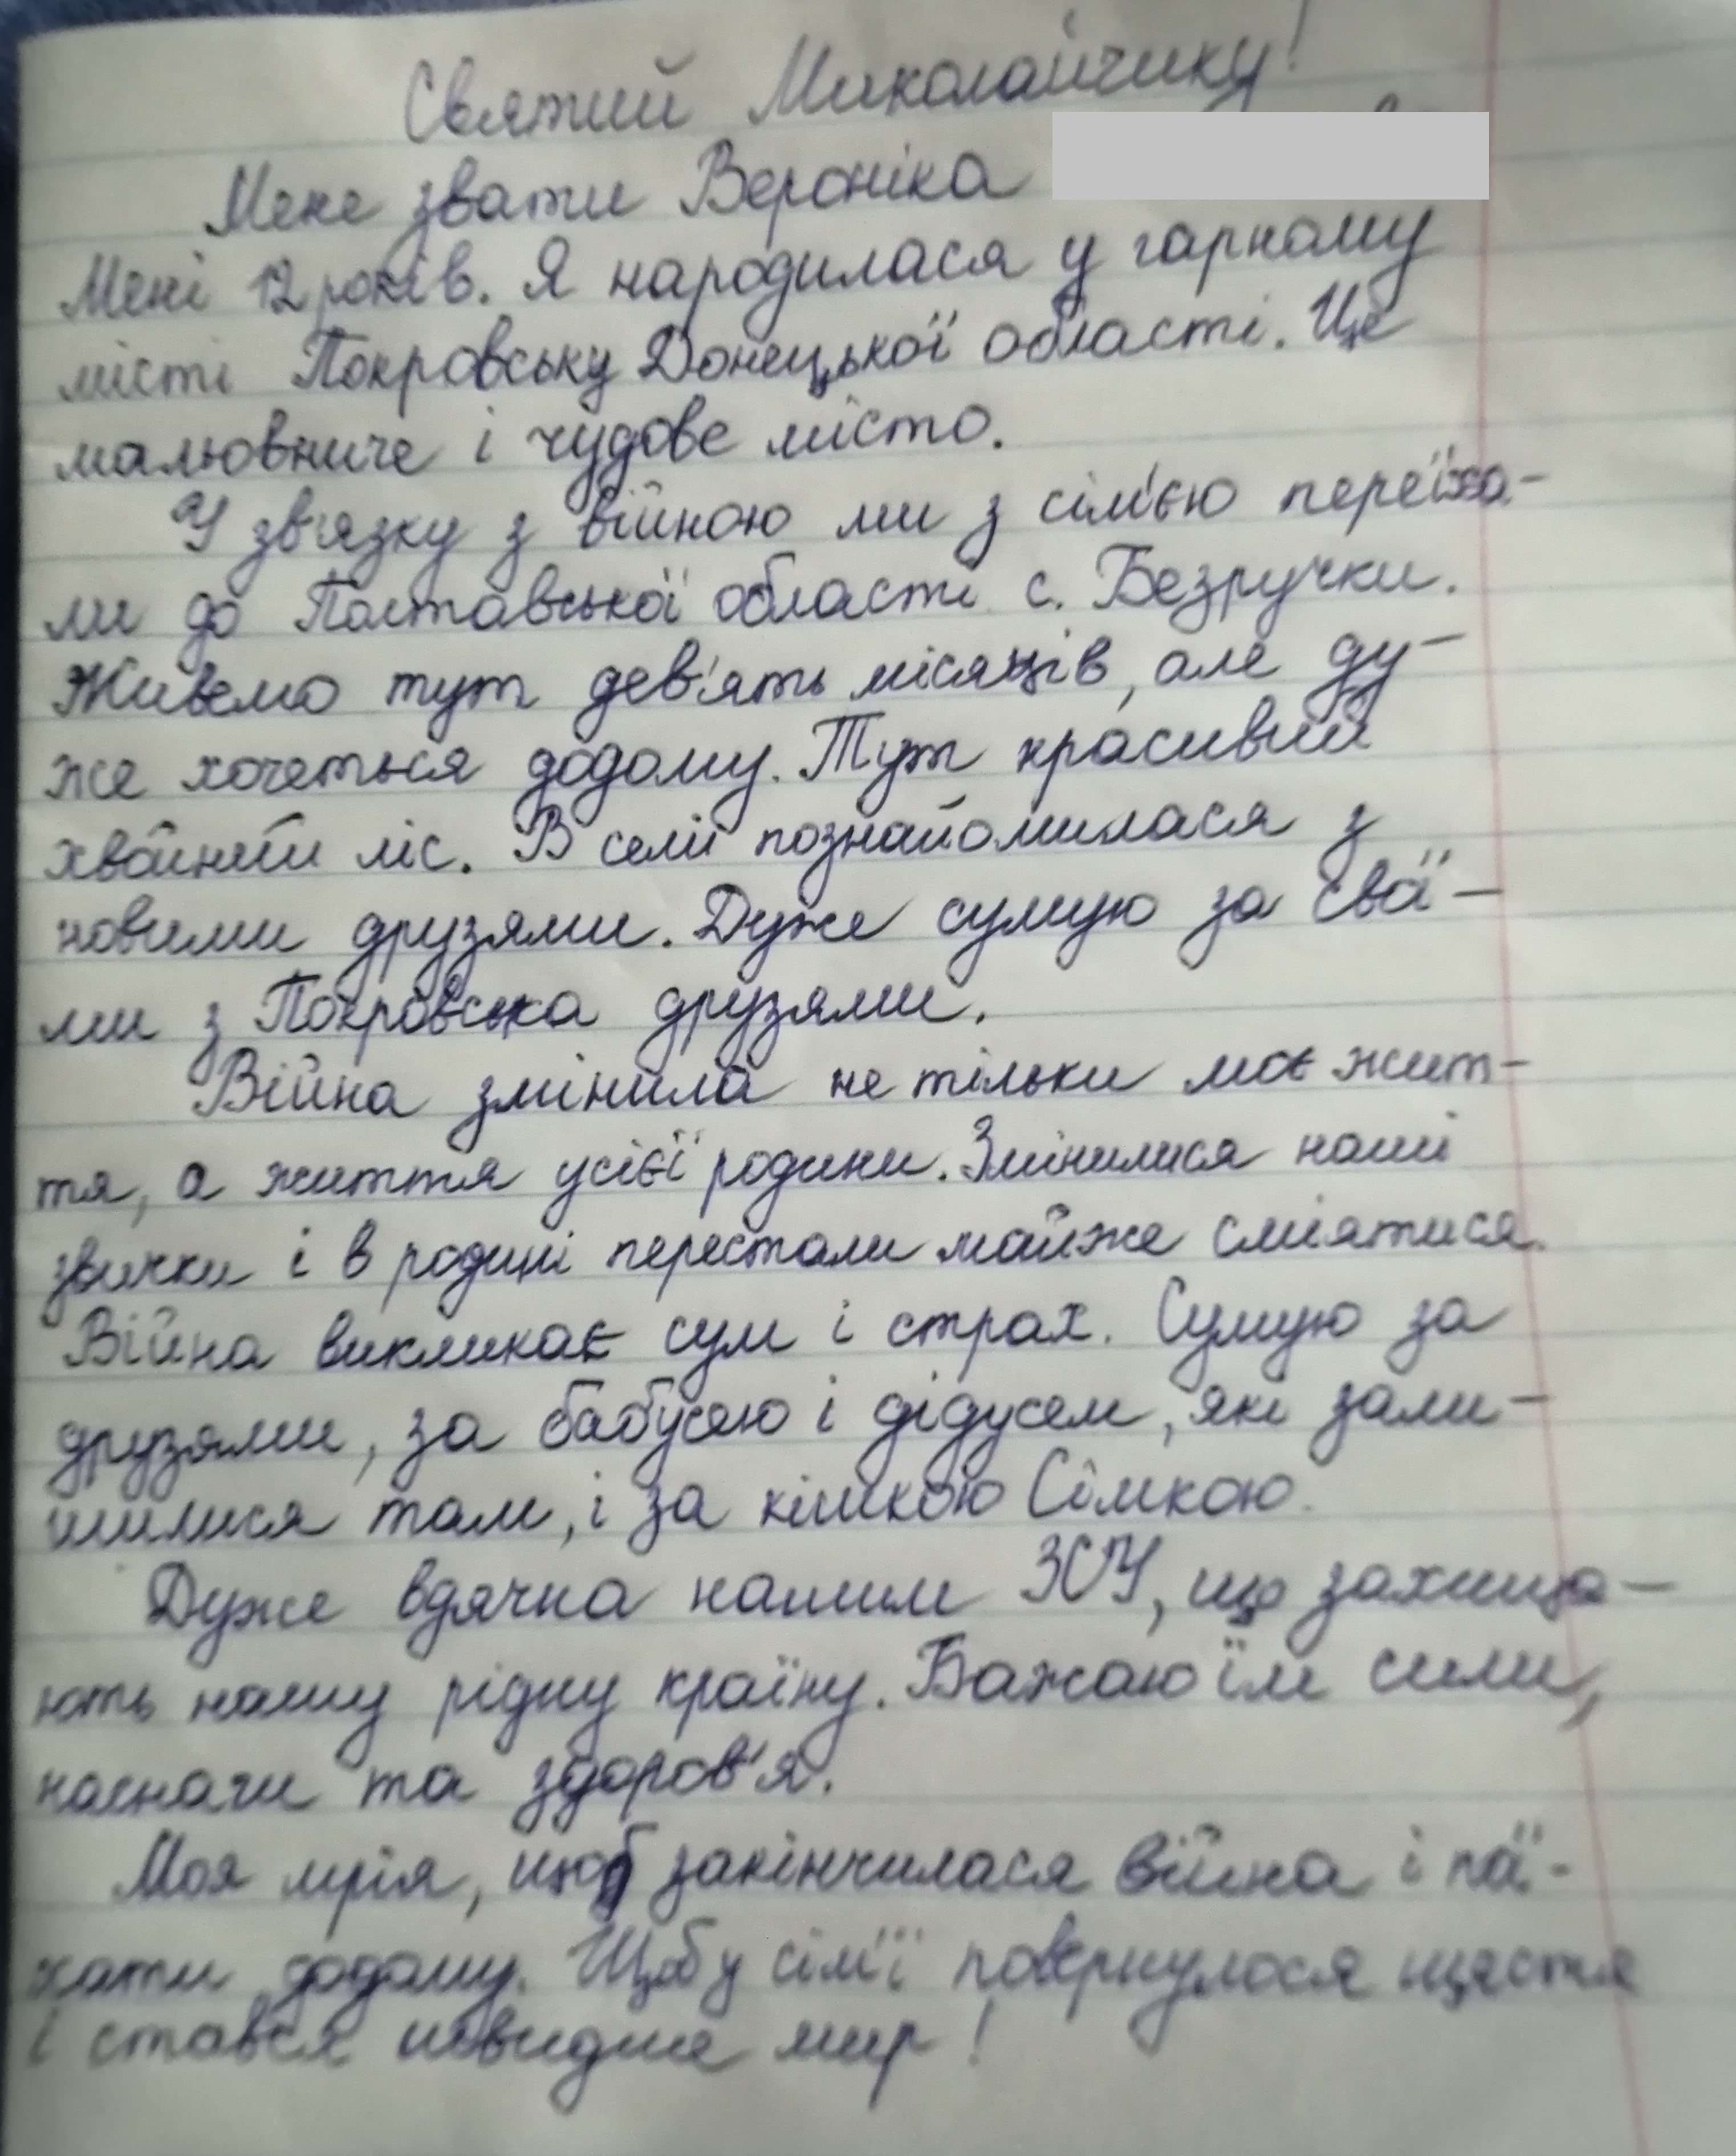 Святий Миколайчику!
Мене звати Вероніка
Мені 12 років. Я народилася у гарному
місті Покровську Донецької області. Це
мальовниче і чудове місто.
У зв'язку з війною ми з сім'єю переїха-
ли до Полтавської області с. Безручки.
Живемо тут дев'ять місяців, але ду-
же хочеться додому. Тут красивий
хвойний ліс. В селі познайомилася з
новими друзями. Дуже сумую за свої-
ми з Покровська друзями.
Війна змінила не тільки моє жит-
тя, а життя усієї родини. Змінилися наші
звички і в родині перестали майже сміятися.
Війна викликає сум і страх. Сумую за
друзями, за бабусею і дідусем, які зали-
шилися там, і за кішкою Сімкою.
Дуже вдячна нашим ЗСУ, що захища-
ють нашу рідну країну. Бажаю їм сили,
наснаги та здоров'я.
Моя мрія, щоб закінчилася війна і пої-
хати додому. Щоб у сім'ї повернулося щастя
і стався швидше мир!